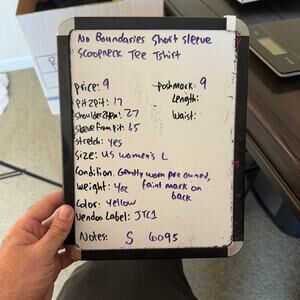 No Boundaries Short Sleeve
Scoopneck Tee Tshirt
price: 9
poshmark: 9
pit2pit: 17
Length:
shoulder2hem: 27
Waist:
sleeve from pit: 6.5
stretch: yes
Size: US women's L
Condition: Gently worn pre owned,
weight: 4oz faint mark on
back
Color: yellow
Vendoo Label: JTC1
Notes: S 6095